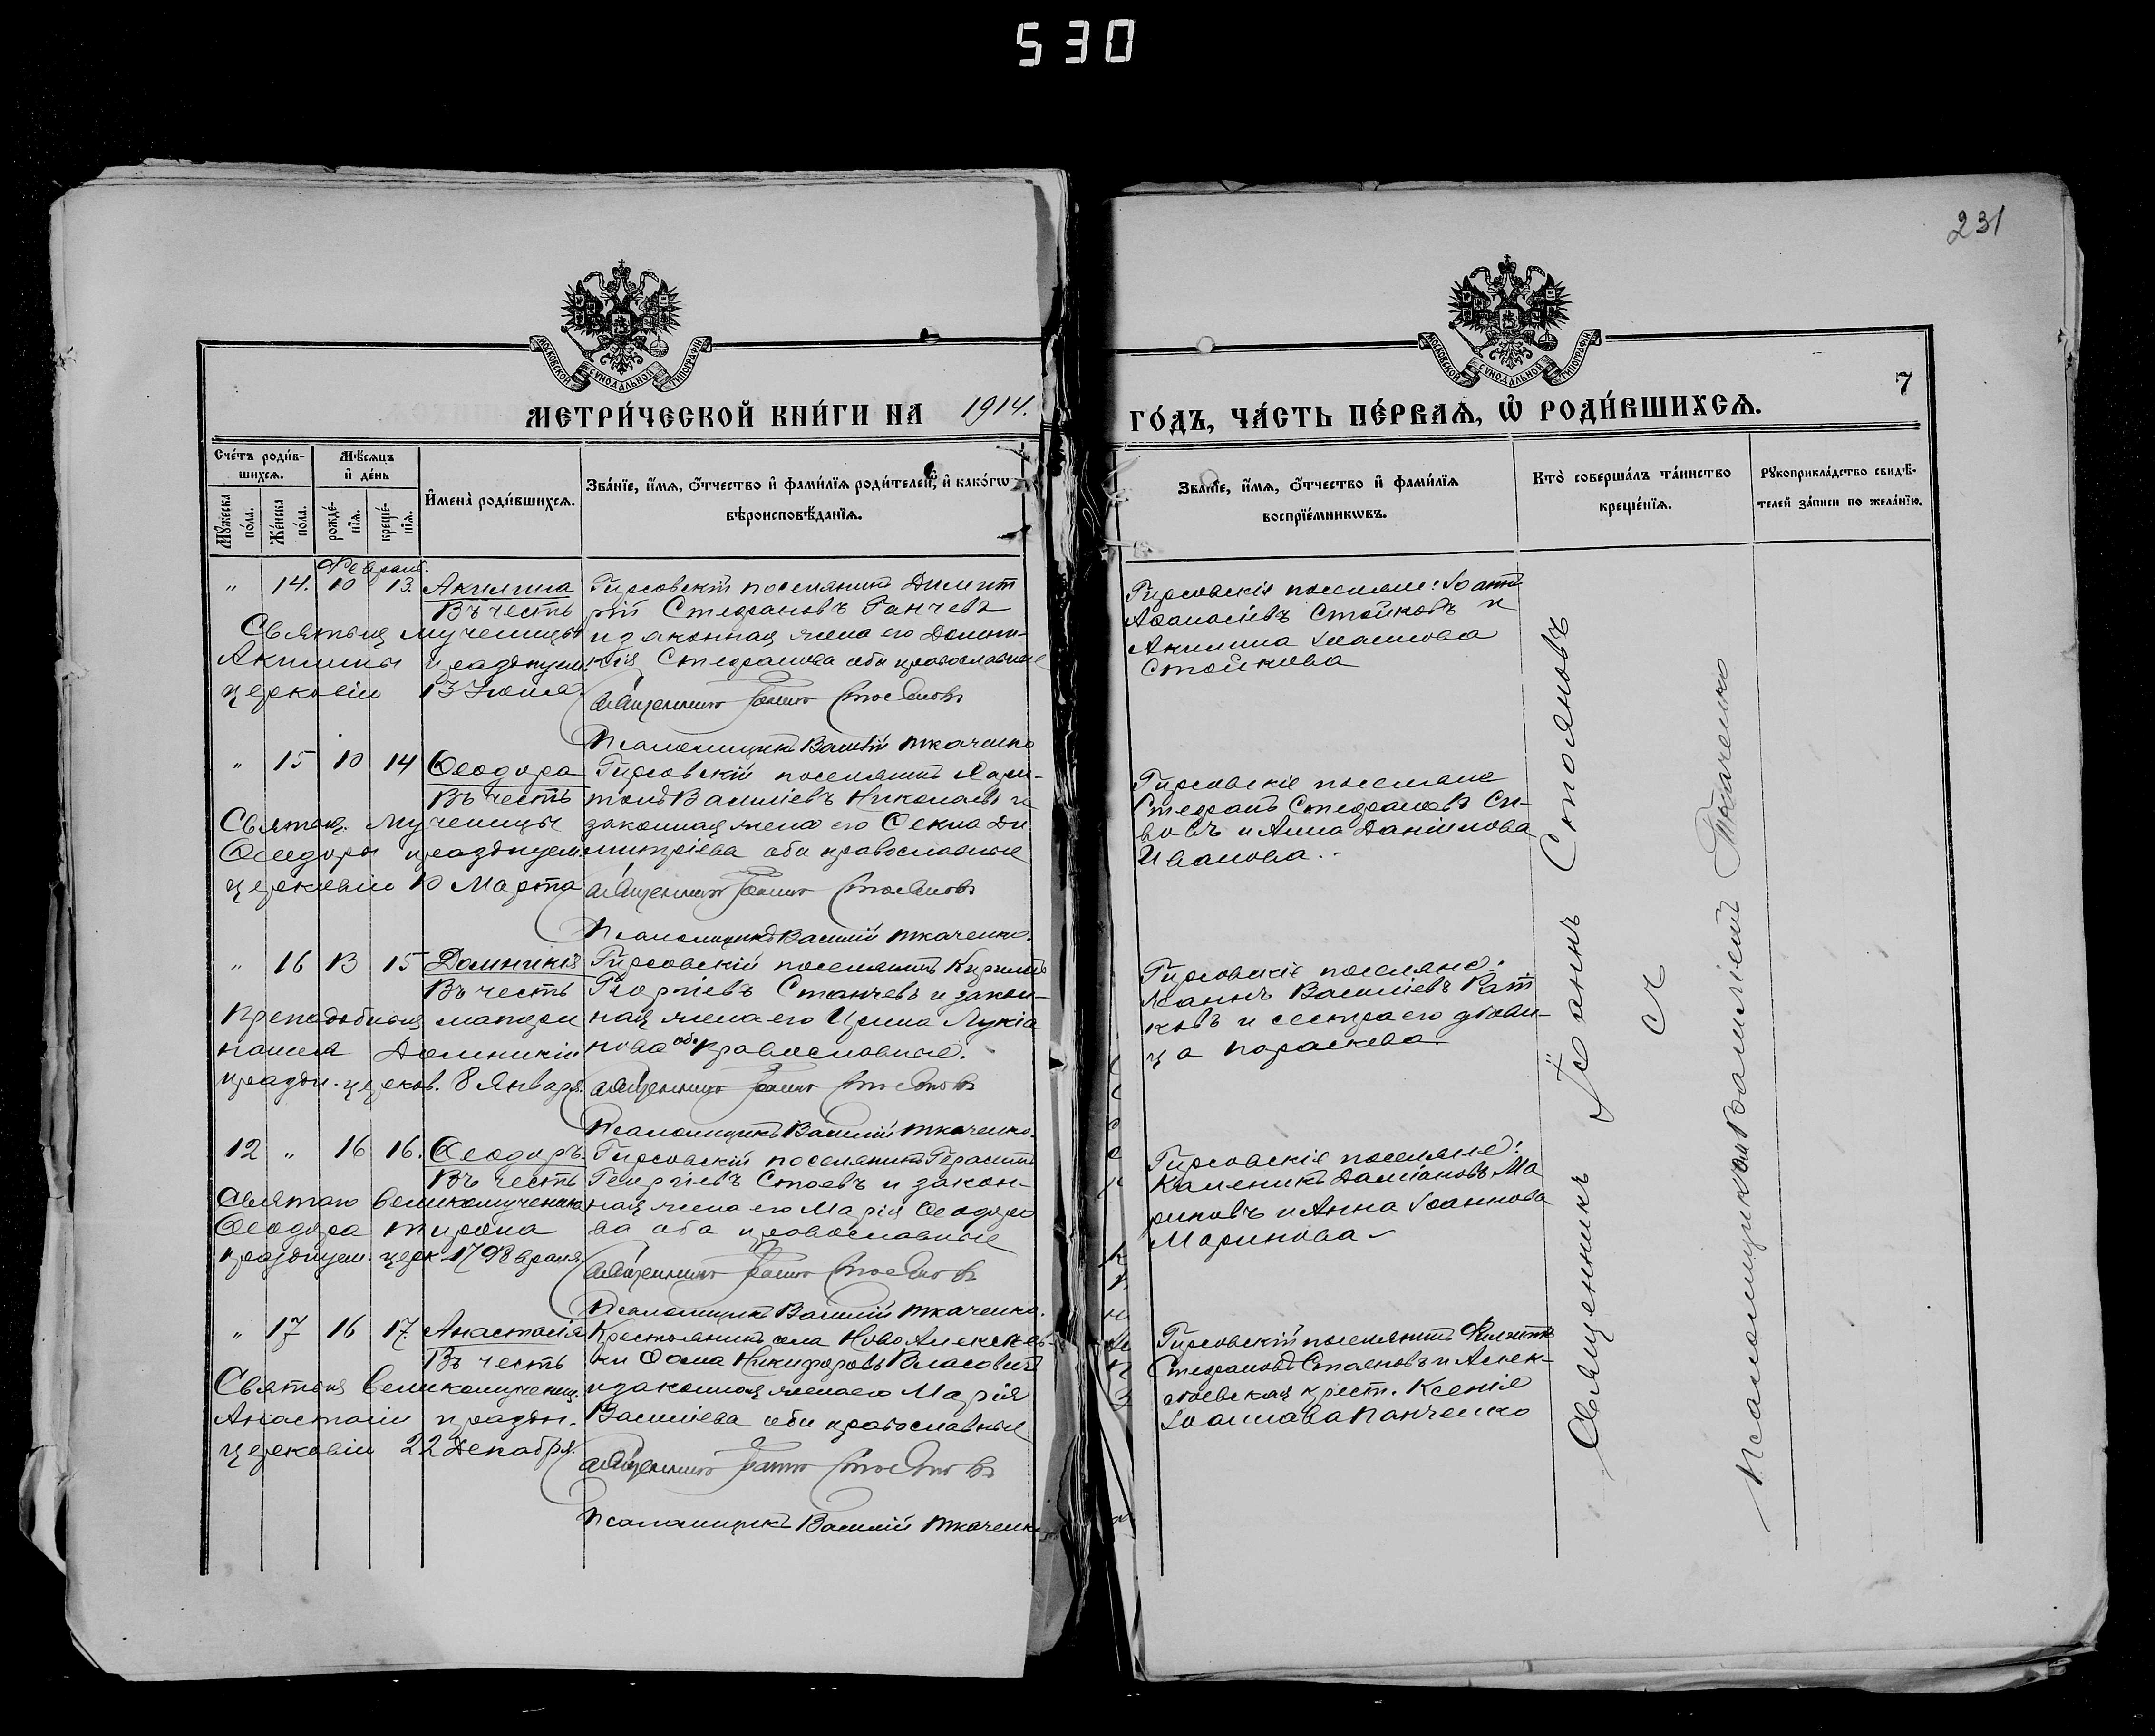 530
231
МОСКОВСКОЙ СѴНОДАЛЬНОЙ ТИПОГРАФІИ
МОСКОВСКОЙ СѴНОДАЛЬНОЙ ТИПОГРАФІИ
7
МЕТРИ́ЧЕСКОЙ КНИ́ГИ НА 1914.
ГО́ДЪ, ЧА́СТЬ ПЕ́РВАѦ, Ѡ҆ РОДИ́ВШИХСѦ.
Сче́тъ роди́в-
шихсѧ.
Мѣ́сѧцъ
и҆ де́нь
Мꙋ́жеска
по́ла.
Же́нска
по́ла.
рожде́-
нїѧ.
креще́-
нїѧ.
И҆мена̀ роди́вшихсѧ.
Зва́нїе, и҆́мѧ, ѻ҆́тчество и҆ фами́лїѧ роди́телей, и҆ како́гѡ
вѣроисповѣ́данїѧ.
Зва́нїе, и҆́мѧ, ѻ҆́тчество и҆ фами́лїѧ
воспрїе́мникѡвъ.
Кто̀ соверша́лъ та́инство
креще́нїѧ.
Рꙋкоприкла́дство свидѣ́-
телей за́писи по жела́нїю.
Февраль.
" 14. 10 13. Акилина
Въ честь
Святыя мученицы
Акилины празднуем
церковію 13 Іюня.
Гирсовскій поселянинъ Димит
рій Стефановъ Ганчевъ
и законная жена его Домни-
кія Стефанова оба православные
Священникъ Іоаннъ Стояновъ
Псаломщикъ Василій Ткаченко
Гирсовскіе поселяне: Іоаннъ
Аѳанасіевъ Стойковъ и
Акилина Іоаннова
Стойкова
" 15 10 14 Ѳеодора
Въ честь
Святыя мученицы
Ѳеодоры празднуем
церковію 10 Марта
Гирсовскій поселянинъ Хари-
тонъ Василіевъ Николаевъ и
законная жена его Ѳекла Ди
митріева оба православные
Священникъ Іоаннъ Стояновъ
Псаломщикъ Василій Ткаченко.
Гирсовскіе поселяне
Стефанъ Стефановъ Си-
вовъ и Анна Даніилова
Иванова.-
" 16 13 15 Домникія
Въ честь
Преподобныя матери
нашея Домникіи
праздн. церков. 8 Января.
Гирсовскій поселянинъ Кириллъ
Георгіевъ Станчевъ и закон-
ная жена его Ирина Лукіа
нова оба православные.
Священникъ Іоаннъ Стояновъ
Псаломщикъ Василій Ткаченко.
Гирсовскіе поселяне:
Іоаннъ Василіевъ Рат
ковъ и сестра его дѣви-
ца Параскева
12 " 16 16. Ѳеодоръ.
Въ честь
Святаго великомученика
Ѳеодора Тирона
празднуем. церк. 17 Февраля.
Гирсовскій поселянинъ Герасимъ
Георгіевъ Стоевъ и закон-
ная жена его Марія Ѳеодоро
ва оба православные
Священникъ Іоаннъ Стояновъ
Псаломщикъ Василій Ткаченко.
Гирсовскіе поселяне:
Каленикъ Даміановъ Ма
риновъ и Анна Іоаннова
Маринова
" 17 16 17. Анастасія
Въ честь
Святыя великомучениц.
Анастасіи праздн.
церковію 22 Декабря.
Крестьянинъ села Ново Алексѣев-
ки Ѳома Никифоровъ Власовъ
и законная жена его Марія
Василіева оба православные
Священникъ Іоаннъ Стояновъ
Псаломщикъ Василій Ткаченко
Гирсовскій поселянинъ Филиппъ
Стефановъ Стояновъ и Алек-
сѣевская крест. Ксенія
Іоаннова Панченко
Священникъ Іоаннъ Стояновъ
съ
Псаломщикомъ Василіемъ Ткаченко